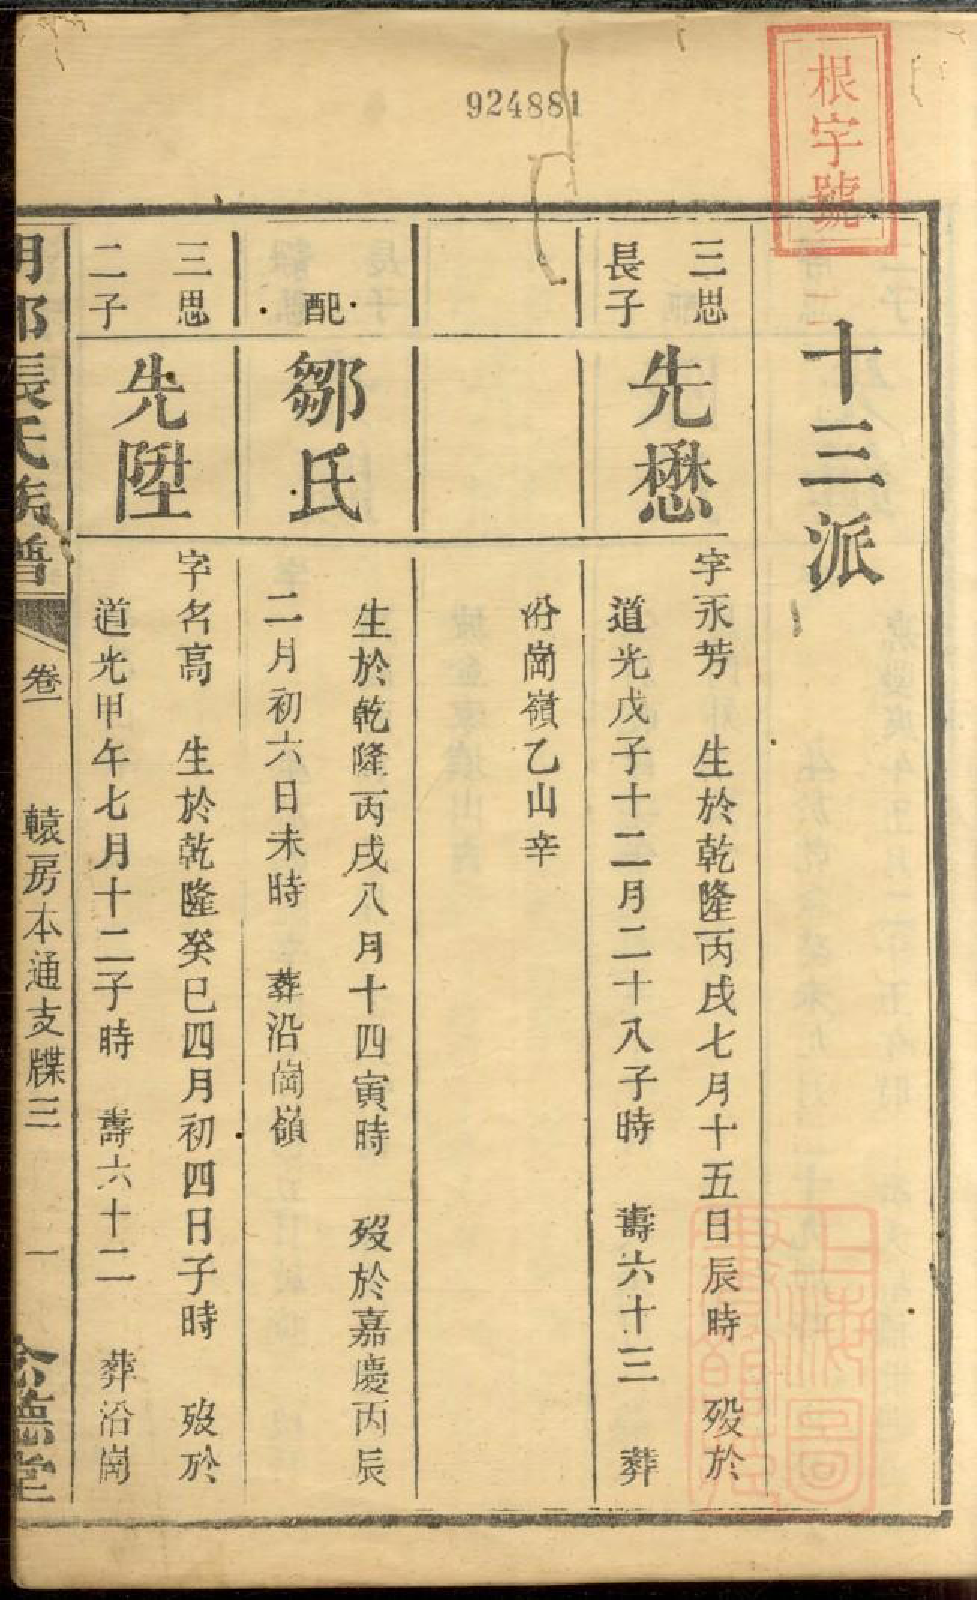 924881
根字號
十三派
三思
長子
先懋
字永芳 生於乾隆丙戌七月十五日辰時 歿於
道光戊子十二月二十八子時 壽六十三 葬
沿崗嶺乙山辛
配
鄒氏
生於乾隆丙戌八月十四寅時 歿於嘉慶丙辰
二月初六日未時 葬沿崗嶺
三思
二子
先陞
字名高 生於乾隆癸巳四月初四日子時 歿於
道光甲午七月十二子時 壽六十二 葬沿崗
張氏族譜
卷一
轅房本通支牒三
一
德堂
上海圖書館藏